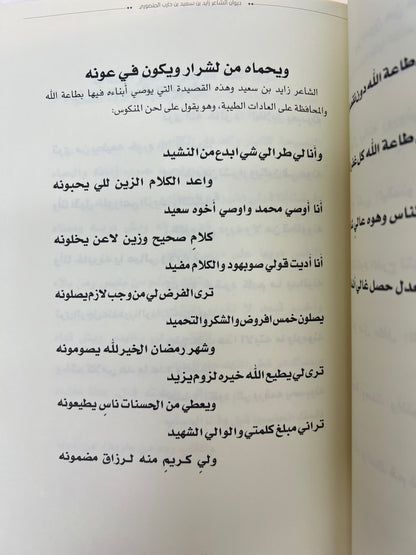 ديوان الشاعر زايد بن سعيد بن حارب المنصوري
ويحماه من لشرار ويكون في عونه
الشاعر زايد بن سعيد وهذه القصيدة التي يوصي أبناءه فيها بطاعة الله
والمحافظة على العادات الطيبة، وهو يقول على لحن المنكوس:
وأنا لي طرالي شي ابدع من النشيد
واعد الكلام الزين للي يحبونه
أنا أوصي محمد واوصي أخوه سعيد
كلامٍ صحيح وزين لاعن يخلونه
أنا أديت قولي صوبهود والكلام مفيد
ترى الفرض لي من وجب لازم يصلونه
يصلون خمس افروض والشكر والتحميد
وشهر رمضان الخير لله يصومونه
ترى لي يطيع الله خيره لزوم يزيد
ويعطي من الحسنات ناسٍ يطيعونه
تراني مبلغ كلمتي والوالي الشهيد
ولي كريمٍ منه لرزاق مضمونه
طاعة الله دون
طاعة الله كل
الناس وهوه عالي
عدل حصل غالي